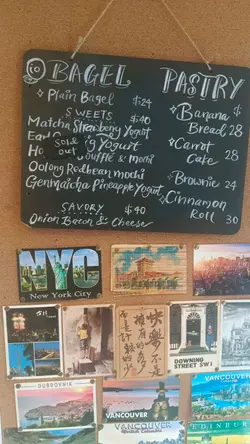 BAGEL
Plain Bagel $24
SWEETS $40
Matcha Strawberry Yogurt
Earl Yogurt
Sold out
Ho Soufflé & mochi
Oolong Redbean mochi
Genmaicha Pineapple Yogurt
SAVORY $40
Onion Bacon & Cheese
PASTRY
Banana
Bread 28
Carrot
Cake 28
Brownie 24
Cinnamon
Roll 30
NYC
New York City
快樂不是
擁有得多
而是計較
DOWNING
STREET SW1
DUBROVNIK
VANCOUVER
VANCOUVER
VANCOUVER
EDINBURGH